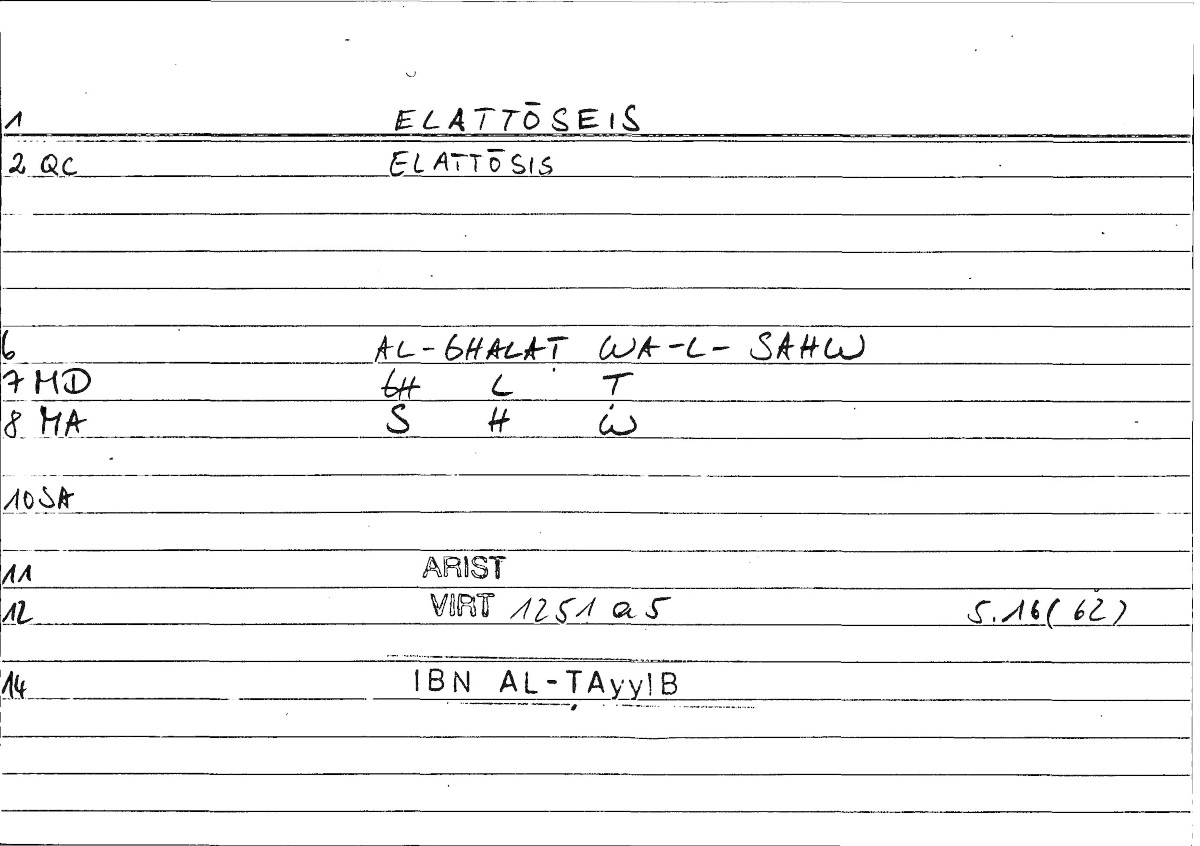 1 ELATTŌSEIS
2 QC ELATTŌSIS
6 AL-GHALAṬ WA-L-SAHW
7 MD GH L Ṭ
8 MA S H W
10 SA
11 ARIST
12 VIRT 1251 a 5 S. 16 (62)
14 IBN AL-ṬAyyIB